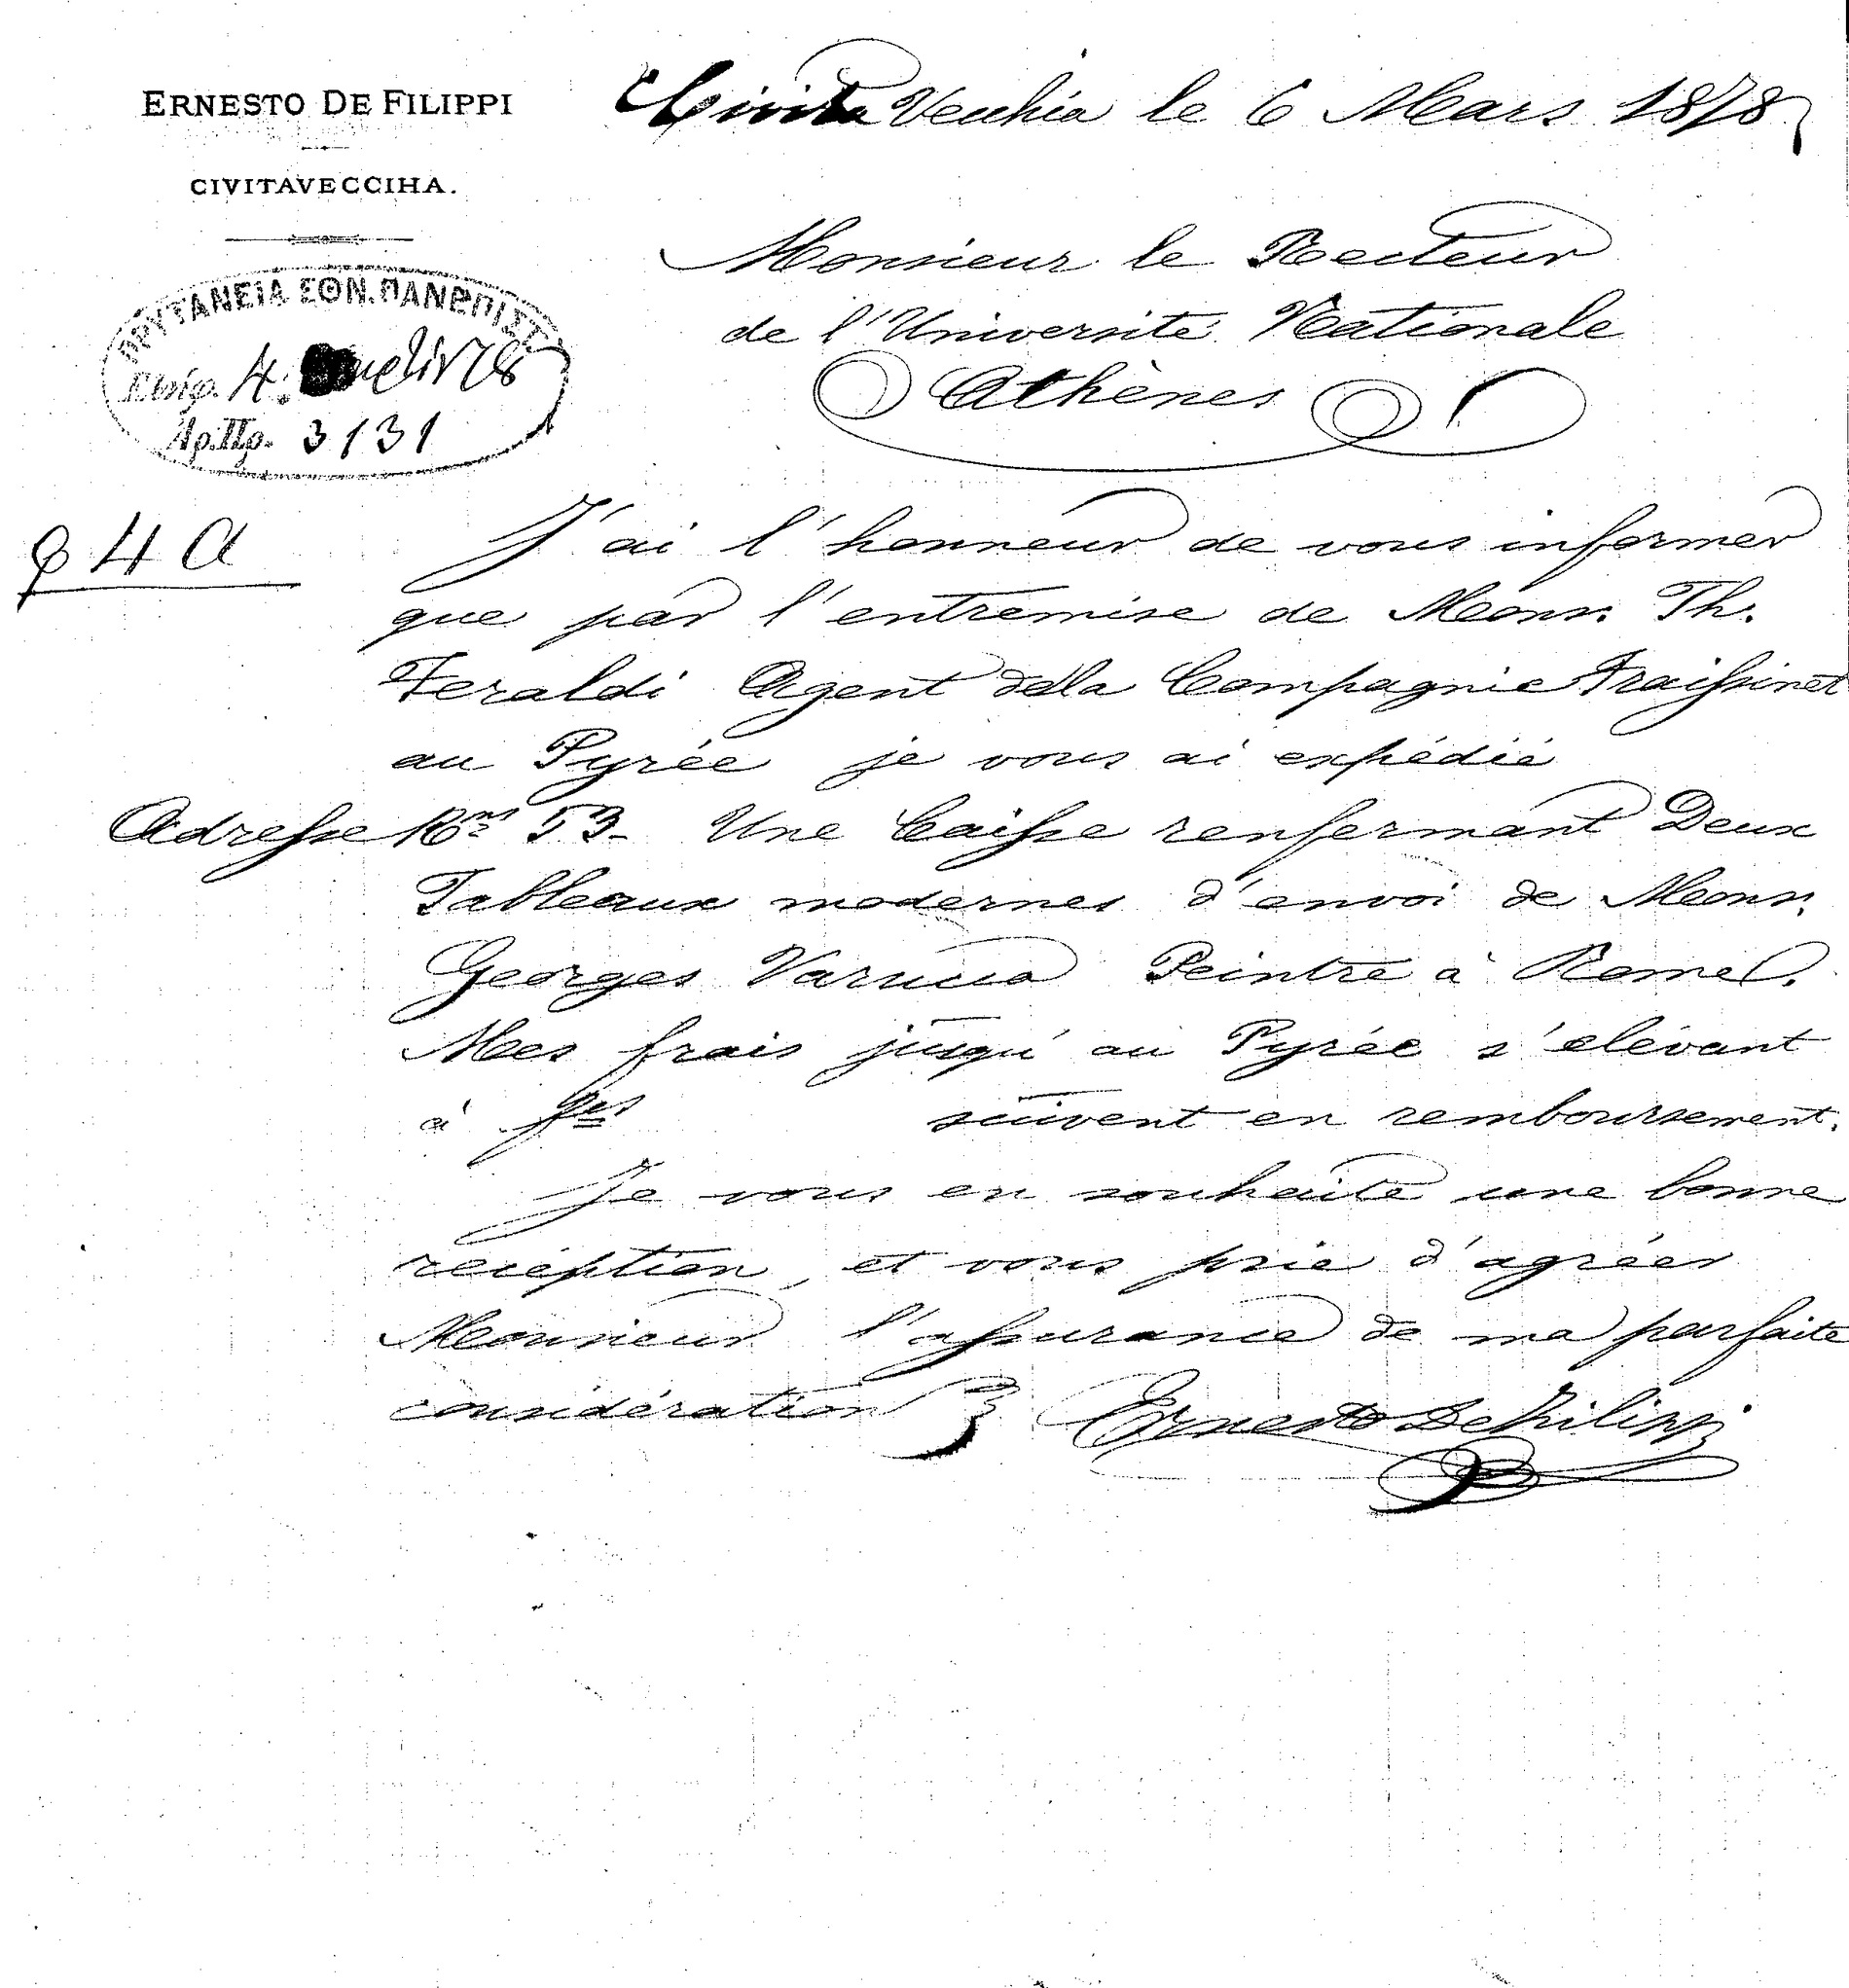 ERNESTO DE FILIPPI
CIVITAVECCIHA.
Civita Vecchia le 6 Mars 1878
ΠΡΥΤΑΝΕΙΑ ΕΘΝ. ΠΑΝΕΠΙΣΤ
4.
78
Αρ.Πρ. 3131
Monsieur le Recteur
de l'Université Nationale
Athènes
84 a
J'ai l'honneur de vous informer
que par l'entremise de Monsr. Th.
Feraldi Agent de la Compagnie Fraissinet
au Pyrée je vous ai expédié
Adresse 53- Une Caisse renfermant Deux
Tableaux modernes d'envoi de Monsr.
Georges Varucca Peintre à Rome.
Mes frais jusqu'au Pyrée s'elévant
à fcs suivent en remboursement.
Je vous en souhaite une bonne
reception, et vous prie d'agréer
Monsieur l'assurance de ma parfaite
considération
Ernesto De Filippi